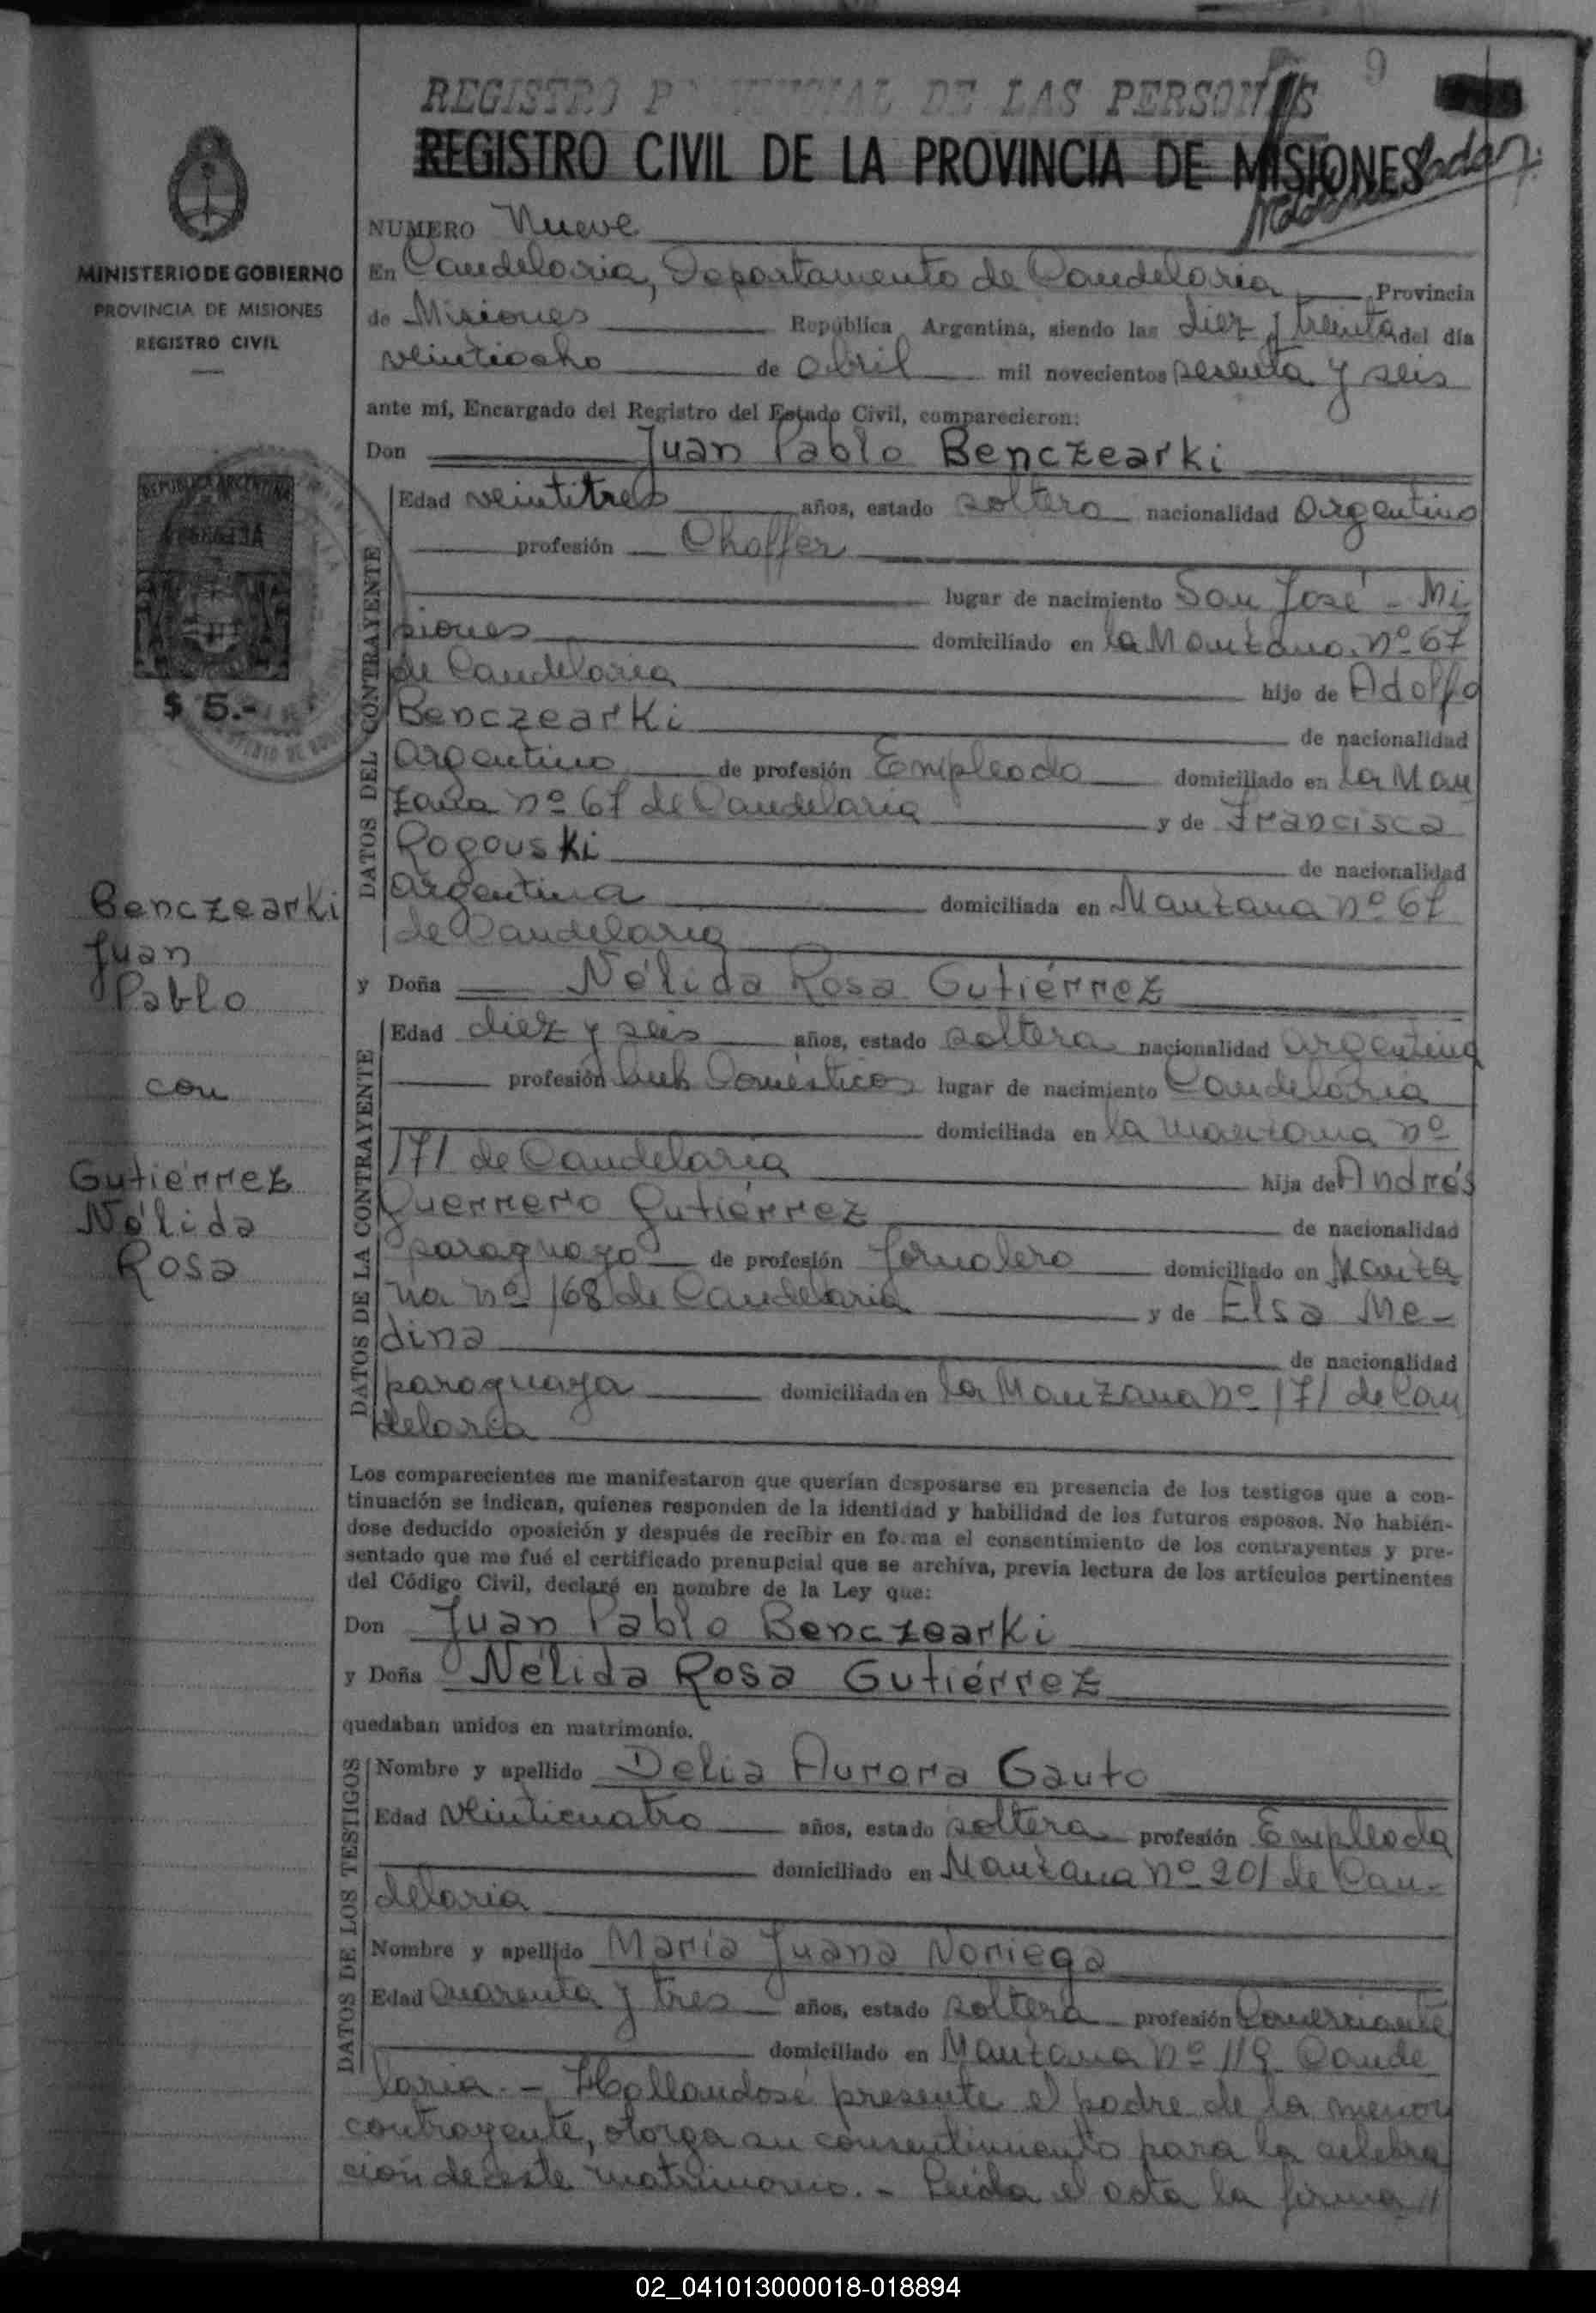 9
REGISTRO PROVINCIAL DE LAS PERSONAS
REGISTRO CIVIL DE LA PROVINCIA DE MISIONES
MINISTERIO DE GOBIERNO
PROVINCIA DE MISIONES
REGISTRO CIVIL
REPUBLICA ARGENTINA
$ 5.-
Benczearki
Juan
Pablo
con
Gutiérrez
Nélida
Rosa
NUMERO Nueve
En Candelaria, Departamento de Candelaria Provincia
de Misiones República Argentina, siendo las diez y treinta del día
veintiocho de abril mil novecientos sesenta y seis
ante mí, Encargado del Registro del Estado Civil, comparecieron:
Don Juan Pablo Benczearki
DATOS DEL CONTRAYENTE
Edad veintitres años, estado soltero nacionalidad Argentino
profesión Choffer
lugar de nacimiento San José - Mi
siones domiciliado en la Manzana nº 67
de Candelaria hijo de Adolfo
Benczearki de nacionalidad
argentino de profesión Empleado domiciliado en la Man
zana nº 67 de Candelaria y de Francisca
Rogouski de nacionalidad
argentina domiciliada en Manzana nº 67
de Candelaria
y Doña Nélida Rosa Gutiérrez
DATOS DE LA CONTRAYENTE
Edad diez y seis años, estado soltera nacionalidad argentina
profesión Domésticos lugar de nacimiento Candelaria
domiciliada en la manzana nº
171 de Candelaria hija de Andrés
Guerrero Gutiérrez de nacionalidad
paraguayo de profesión Jornalero domiciliado en Manza
na nº 168 de Candelaria y de Elsa Me-
dina de nacionalidad
paraguaya domiciliada en la Manzana nº 171 de Can
delaria
Los comparecientes me manifestaron que querían desposarse en presencia de los testigos que a con-
tinuación se indican, quienes responden de la identidad y habilidad de los futuros esposos. No habién-
dose deducido oposición y después de recibir en forma el consentimiento de los contrayentes y pre-
sentado que me fué el certificado prenupcial que se archiva, previa lectura de los artículos pertinentes
del Código Civil, declaré en nombre de la Ley que:
Don Juan Pablo Benczearki
y Doña Nélida Rosa Gutiérrez
quedaban unidos en matrimonio.
DATOS DE LOS TESTIGOS
Nombre y apellido Delia Aurora Gauto
Edad veinticuatro años, estado soltera profesión Empleada
domiciliado en Manzana nº 201 de Can-
delaria
Nombre y apellido María Juana Noriega
Edad cuarenta y tres años, estado soltera profesión Comerciante
domiciliado en Manzana nº 119 Cande
laria. - Hallandosé presente el padre de la menor
contrayente, otorga su consentimiento para la celebra
ción de este matrimonio. - Leída el acta la firma //
02_041013000018-018894